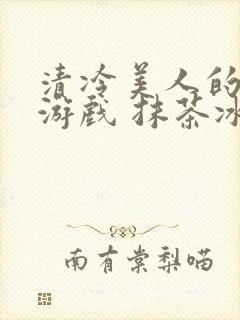 清冷美人的
游戏 抹茶冰
南有棠梨喵